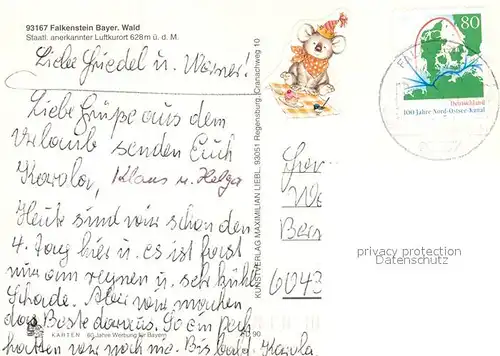 93167 Falkenstein Bayer. Wald
Staatl. anerkannter Luftkurort 628m ü. d. M.
Liebe Friedel u. Werner!
Liebe Grüße aus dem
Urlaub senden Euch
Karola, Klaus u. Helga
Heute sind wir schon den
4. Tag hier u. es ist fast
nur am regnen u. sehr kühl
Schade. Aber wir machen
das Beste daraus. So ein Pech
hatten wir noch nie. Bis bald. Karola
KARTEN 60 Jahre Werbung für Bayern
90
KUNSTVERLAG MAXIMILIAN LIEBL, 93051 Regensburg, Cranachweg 10
80
Deutschland
100 Jahre Nord-Ostsee-Kanal
We
Ber
6043
privacy protection
Datenschutz